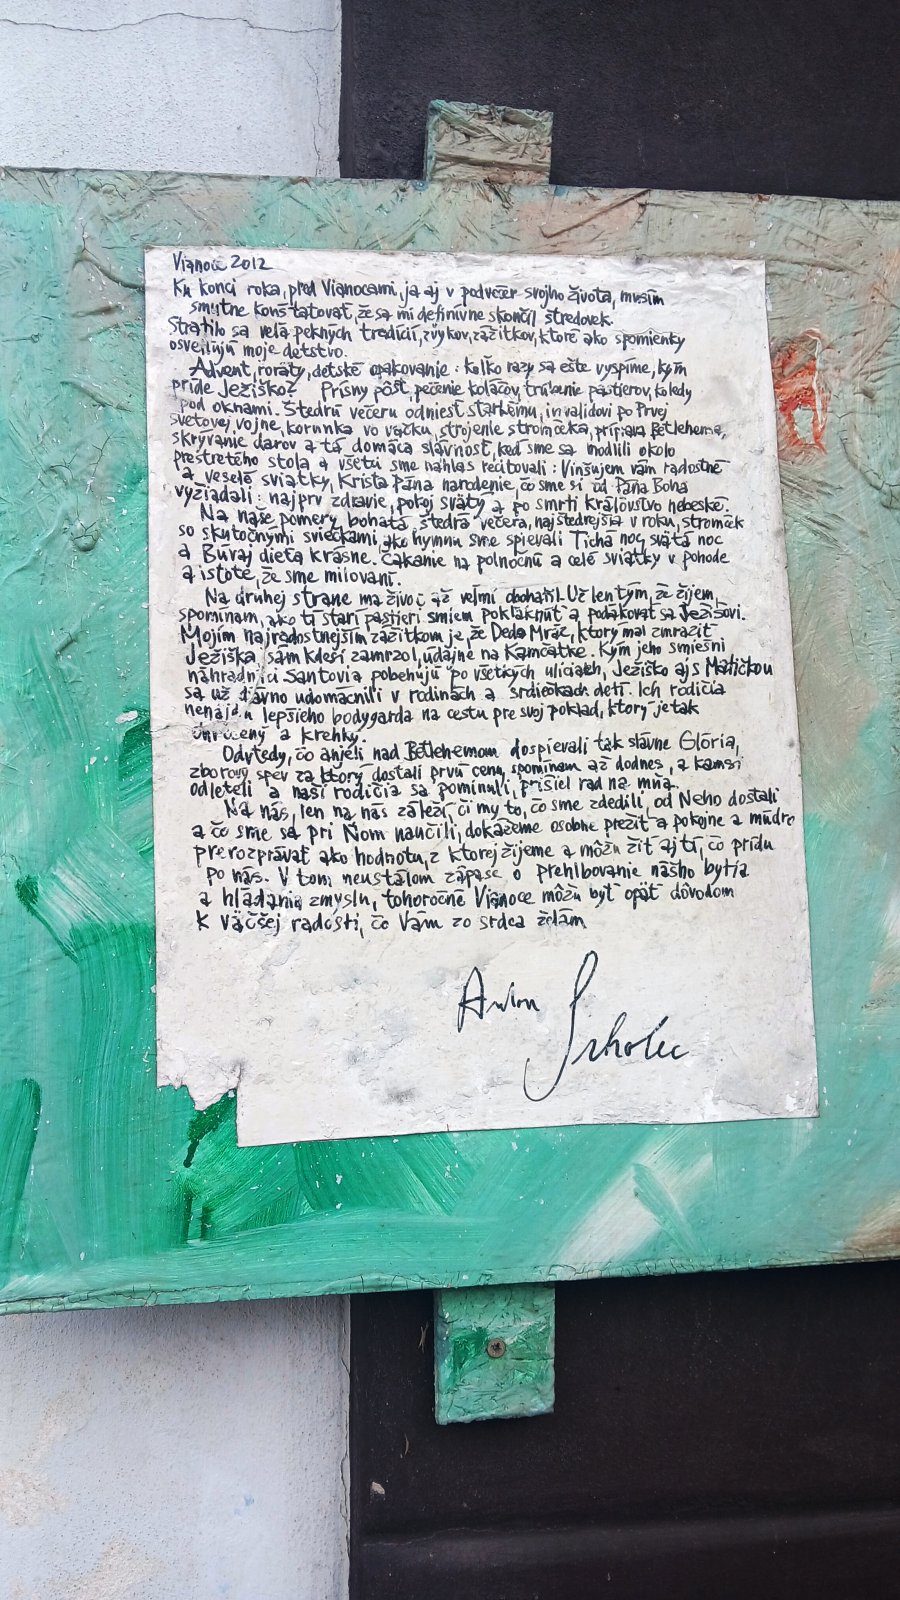 Vianoce 2012
Ku koncu roka, pred Vianocami, ja aj v podvečer svojho života, musím
smutne konštatovať, že sa mi definívne skončil stredovek.
Stratilo sa veľa pekných tradícií, zvykov, zážitkov, ktoré ako spomienky
osvetľujú moje detstvo.
Advent, roráty, detské opakovanie: koľko razy sa ešte vyspíme, kým
príde Ježiško? Prísny pôst, pečenie koláčov, trúbenie pastierov, koledy
pod oknami. Štedrú večeru odniesť starkému, invalidovi po Prvej
svetovej vojne, korunka vo vačku, strojenie stromčeka, príprava Betlehema,
skrývanie darov a tá domáca slávnosť, keď sme sa modlili okolo
prestretého stola a všetci sme nahlas recitovali: Vinšujem vám radostné
a veselé sviatky, Krista Pána narodenie, čo sme si od Pána Boha
vyžiadali: najprv zdravie, pokoj svätý a po smrti kráľovstvo nebeské.
Na naše pomery bohatá štedrá večera, najštedrejšia v roku, stromček
so skutočnými sviečkami, ako hymnu sme spievali Tichá noc, svätá noc
a Búvaj dieťa krásne. Čakanie na polnočnú a celé sviatky v pohode
a istote, že sme milovaní.
Na druhej strane ma život až veľmi obohatil. Už len tým, že žijem,
spomínam, ako tí starí pastieri smiem pokľaknúť a poďakovať sa Ježišovi.
Mojím najradostnejším zážitkom je, že Dedo Mráz, ktorý mal zmraziť
Ježiška, sám kdesi zamrzol, údajne na Kamčatke. Kým jeho smiešni
náhradníci Santovia pobehujú po všetkých uliciach, Ježiško aj s Matičkou
sa už dávno udomácnili v rodinách a srdiečkach detí. Ich rodičia
nenájdu lepšieho bodygarda na cestu pre svoj poklad, ktorý je tak
ohrozený a krehký.
Odvtedy, čo anjeli nad Betlehemom dospievali tak slávne Glória,
zborový spev za ktorý dostali prvú cenu, spomínam až dodnes, a kamsi
odleteli a naši rodičia sa pominuli, prišiel rad na mňa.
Na nás, len na nás záleží, či my to, čo sme zdedili, od Neho dostali
a čo sme sa pri Ňom naučili, dokážeme osobne prežiť a pokojne a múdro
prerozprávať ako hodnotu, z ktorej žijeme a môžu žiť aj tí, čo prídu
po nás. V tom neustálom zápase o prehlbovanie nášho bytia
a hľadania zmyslu, tohoročné Vianoce môžu byť opäť dôvodom
k väčšej radosti, čo Vám zo srdca želám
Anton Srholec